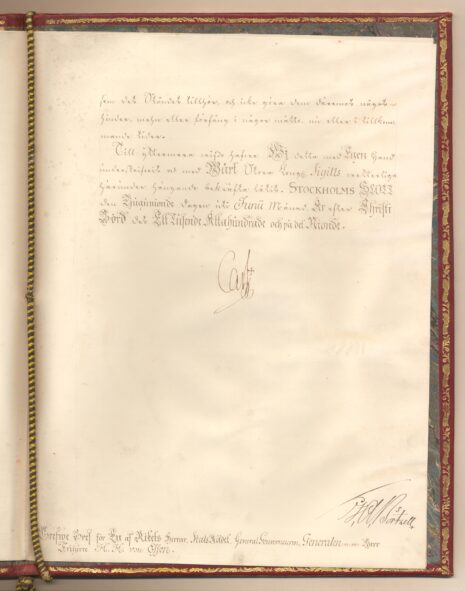 som det Ståndet tillhör, och icke göra dem däremot något
hinder, mehn eller förfång i någor måtto, nu eller i tillkom
mande tider.
Till yttermera wisso hafwe Wi detta med Egen Hand
underskrifwit och med Wårt Stora Kongl. Sigills wederliga
härunder hängande bekräfta låtit. STOCKHOLMS SLOTT
den Tjugunionde dagen uti Junii Månad, År efter Christi
Börd det Ett Tusende Åttahundrade och på det Nionde.
Carl
Grefwe Bref för En af Rikets Herrar, Stats Rådet, General Gouverneuren, Generalen Herr
Friherre H. H. von Essen.